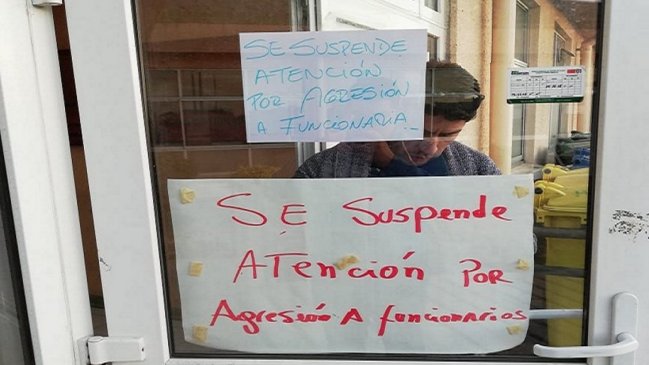 SE SUSPENDE
ATENCIÓN
POR AGRESIÓN
A FUNCIONARIA.
SE Suspende
ATención POR
Agresión A funcionarios